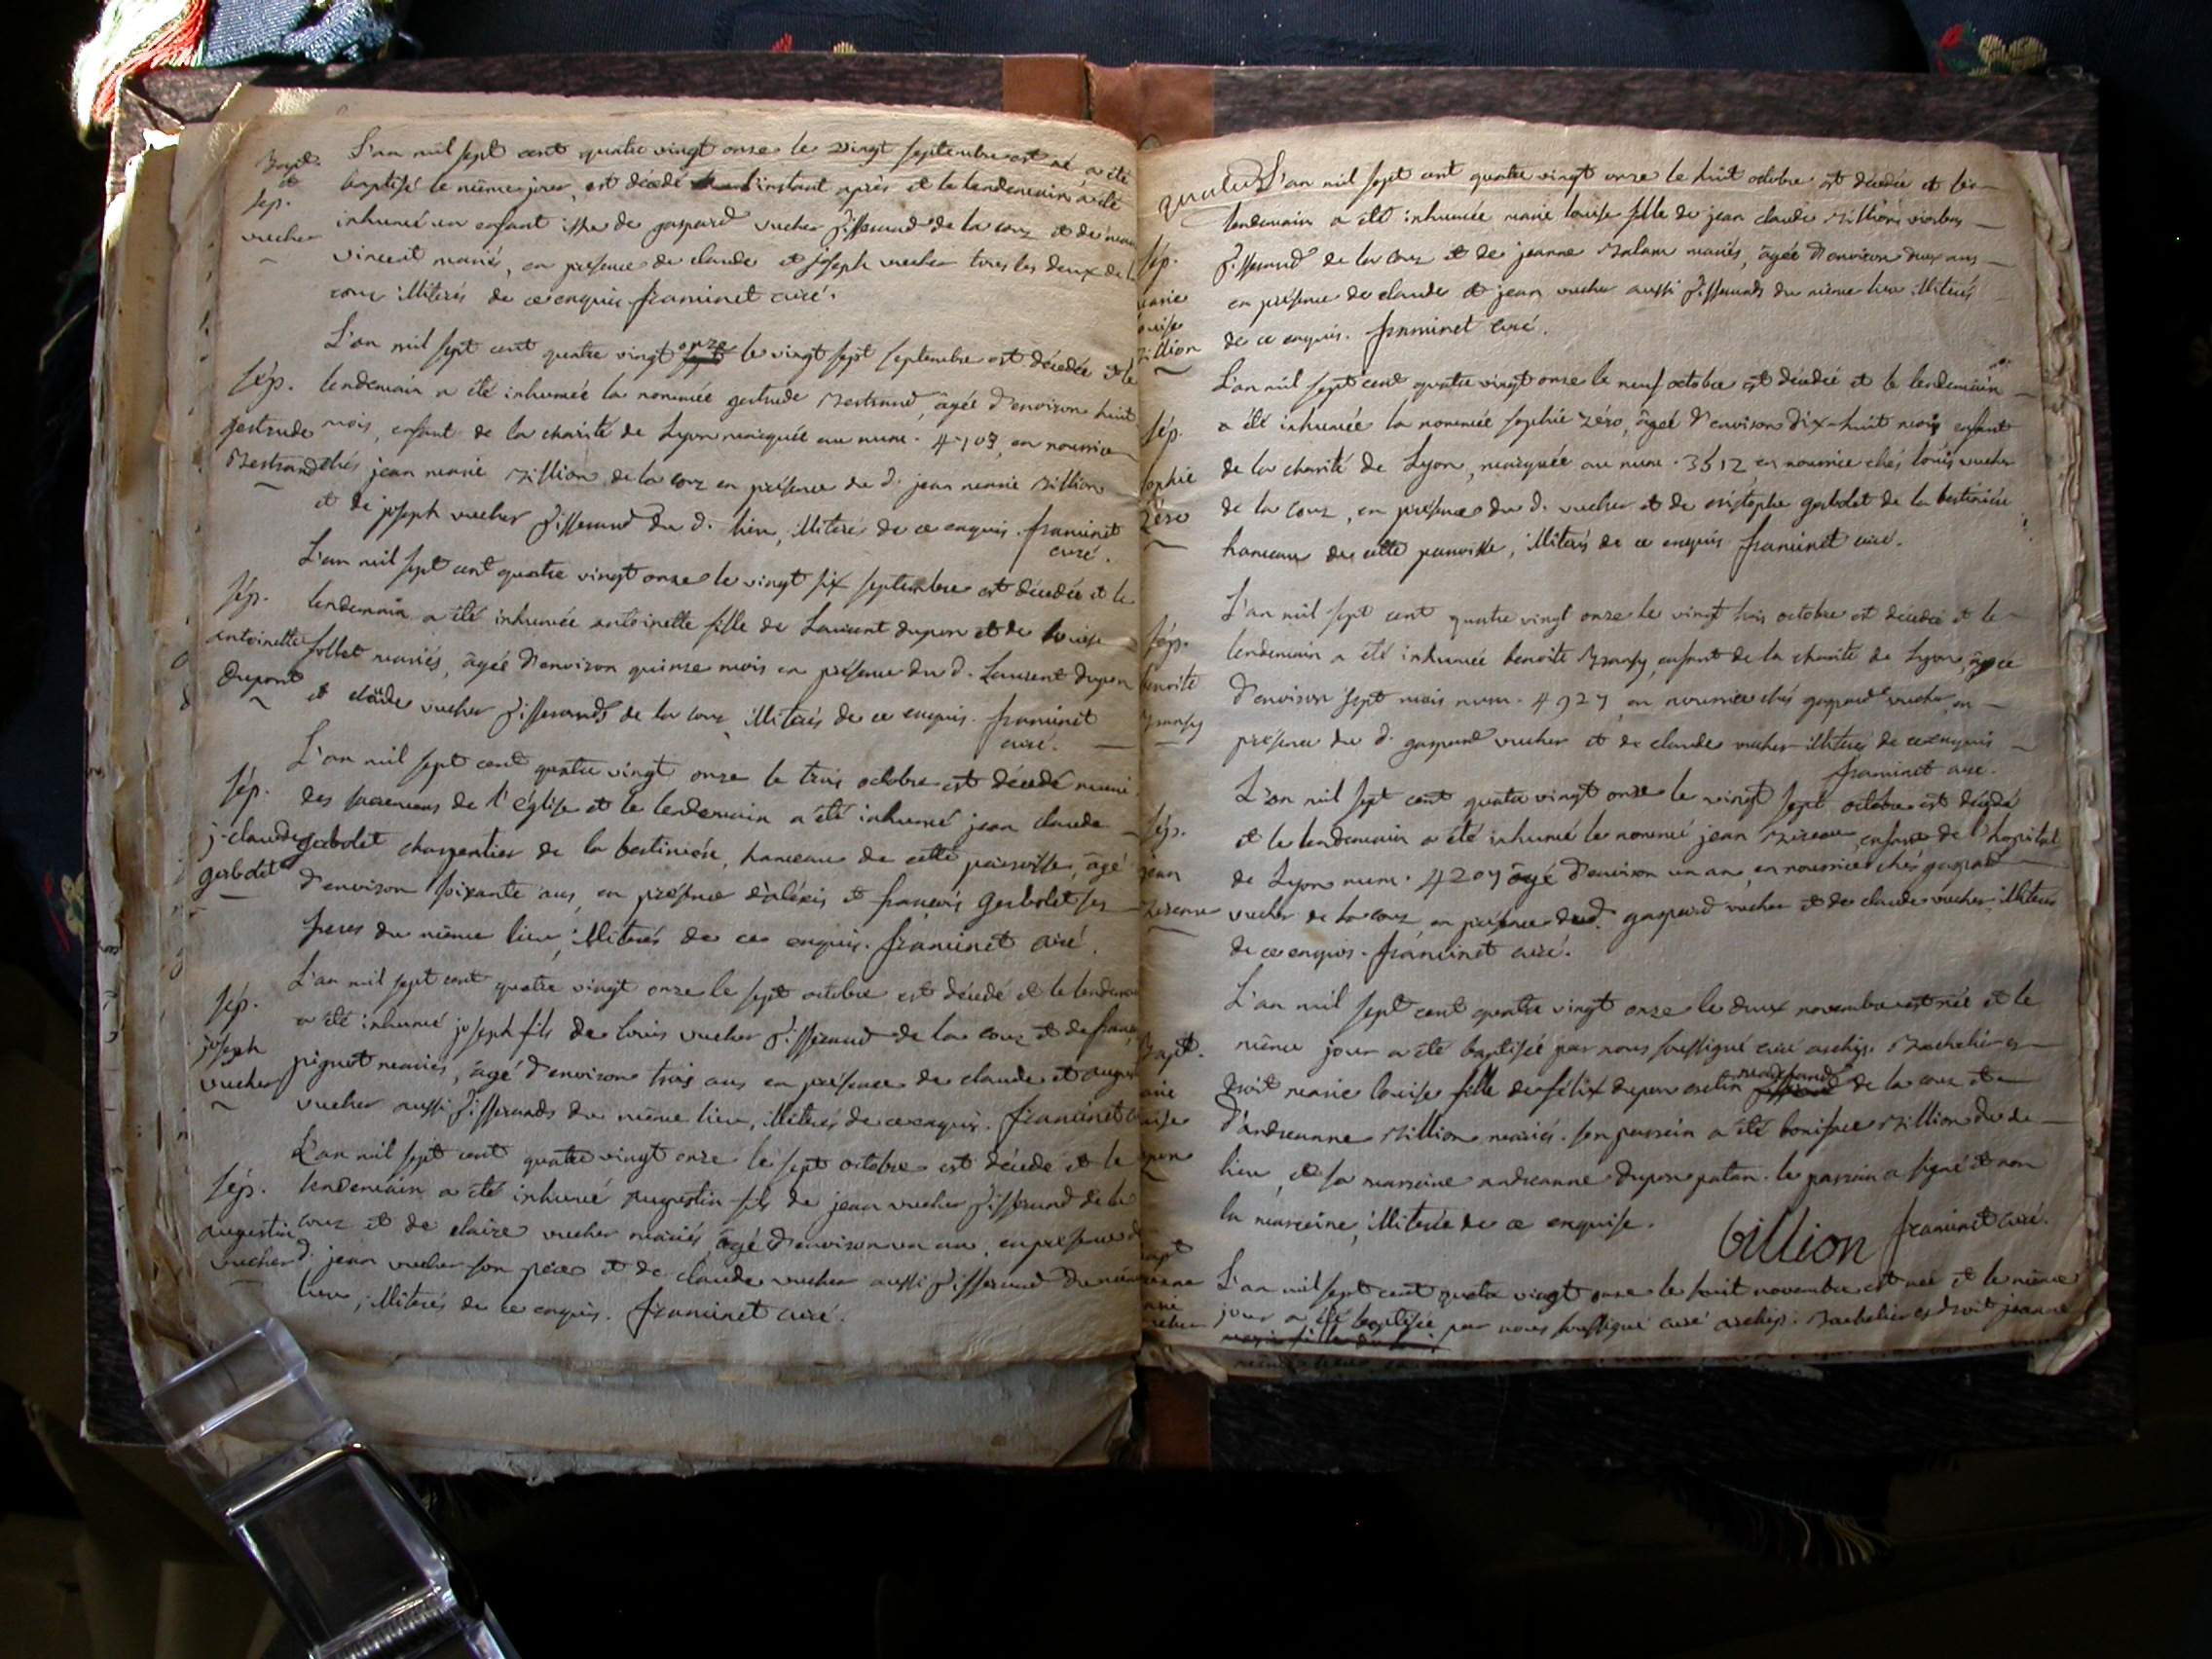 Bapt.
et
sep.
vucher
L'an mil sept cent quatre vingt onze le vingt septembre est né, a été
baptisé le même jour, est décédé l'instant après et le lendemain a été
inhumé un enfant issu de gaspard vucher Tisserand de la cour et de
vincent mariés, en présence de claude et joseph vucher tous les deux de la
cour illiterés de ce enquis franinet curé.
L'an mil sept cent quatre vingt onze le vingt sept septembre est décédée et le
sép.
gertrude
Bertrand
lendemain a été inhumée la nommée gertrude Bertrand, âgée d'environ huit
mois, enfant de la charité de Lyon marquée au num. 4703, en nourrice
chés jean marie Billion de la cour en présence du d. jean marie Billion
et de joseph vucher Tisserand du d. lieu, illiterés de ce enquis. franinet
curé.
L'an mil sept cent quatre vingt onze le vingt six septembre est décédée et le
sép.
antoinette
dupont
lendemain a été inhumée antoinette fille de Laurent dupon et de louise
follet mariés, âgée d'environ quinze mois en présence du d. Laurent dupon
et claude vucher Tisserands de la cour illiterés de ce enquis. franinet
curé.
L'an mil sept cent quatre vingt onze le trois octobre est décédé muni
sép.
j. claude
gerbolet
des sacremens de l'église et le lendemain a été inhumé jean claude
gerbolet charpentier de la bertinière, hameau de cette paroisse, âgé
d'environ soixante ans, en présence d'aléxis et françois gerbolet ses
freres du même lieu, illiterés de ce enquis. franinet curé.
L'an mil sept cent quatre vingt onze le sept octobre est décédé et le lendemain
sép.
joseph
vucher
a été inhumé joseph fils de louis vucher Tisserand de la cour et de
pignot mariés, âgé d'environ trois ans en présence de claude et
vucher aussi Tisserands du même lieu, illiterés de ce enquis. franinet
L'an mil sept cent quatre vingt onze le sept octobre est décédé et le
sép.
augustin
vucher
lendemain a été inhumé augustin fils de jean vucher Tisserand de la
cour et de claire vucher mariés, âgé d'environ un an, en présence
d. jean vucher son père et de claude vucher aussi Tisserand du même
lieu, illiterés de ce enquis. franinet curé.
L'an mil sept cent quatre vingt onze le huit octobre est décédée et le
sép.
marie
louise
Billion
lendemain a été inhumée marie louise fille de jean claude Billion
Tisserand de la cour et de jeanne mariés, âgée d'environ deux ans
en présence de claude et jean vucher aussi Tisserands du même lieu illiterés
de ce enquis. franinet curé.
L'an mil sept cent quatre vingt onze le neuf octobre est décédée et le lendemain
sép.
sophie
Zéro
a été inhumée la nommée sophie Zéro, âgée d'environ dix-huit mois enfant
de la charité de Lyon, marquée au num. 3512 en nourrice chés louis vucher
de la cour, en présence du d. vucher et de cristophe gerbolet de la bertinière
hameau de cette paroisse, illiterés de ce enquis franinet curé.
L'an mil sept cent quatre vingt onze le vingt trois octobre est décédée et le
sép.
benoite
lendemain a été inhumée benoite enfant de la charité de Lyon, âgée
d'environ sept mois num. 4927, en nourrice chés gaspard vucher, en
présence du d. gaspard vucher et de claude vucher illiterés de ce enquis
franinet curé.
L'an mil sept cent quatre vingt onze le vingt sept octobre est décédé
sép.
jean
et le lendemain a été inhumé le nommé jean enfant de l'hopital
de Lyon num. 4207 âgé d'environ un an, en nourrice chés gaspard
vucher de la cour, en présence du d. gaspard vucher et de claude vucher illiterés
de ce enquis. franinet curé.
L'an mil sept cent quatre vingt onze le deux novembre est née et le
Bapt.
même jour a été baptisée par nous soussigné curé archip. Bachelier es
droit marie louise fille de félix dupon marchand de la cour et
d'andréanne Billion mariés. son parrein a été boniface Billion du dt
lieu, et sa marreine andréanne dupon le parrein a signé et non
la marreine, illiterée de ce enquise.
billion franinet curé.
L'an mil sept cent quatre vingt onze le huit novembre est née et le même
jour a été baptisée par nous soussigné curé archip. Bachelier es droit jeanne